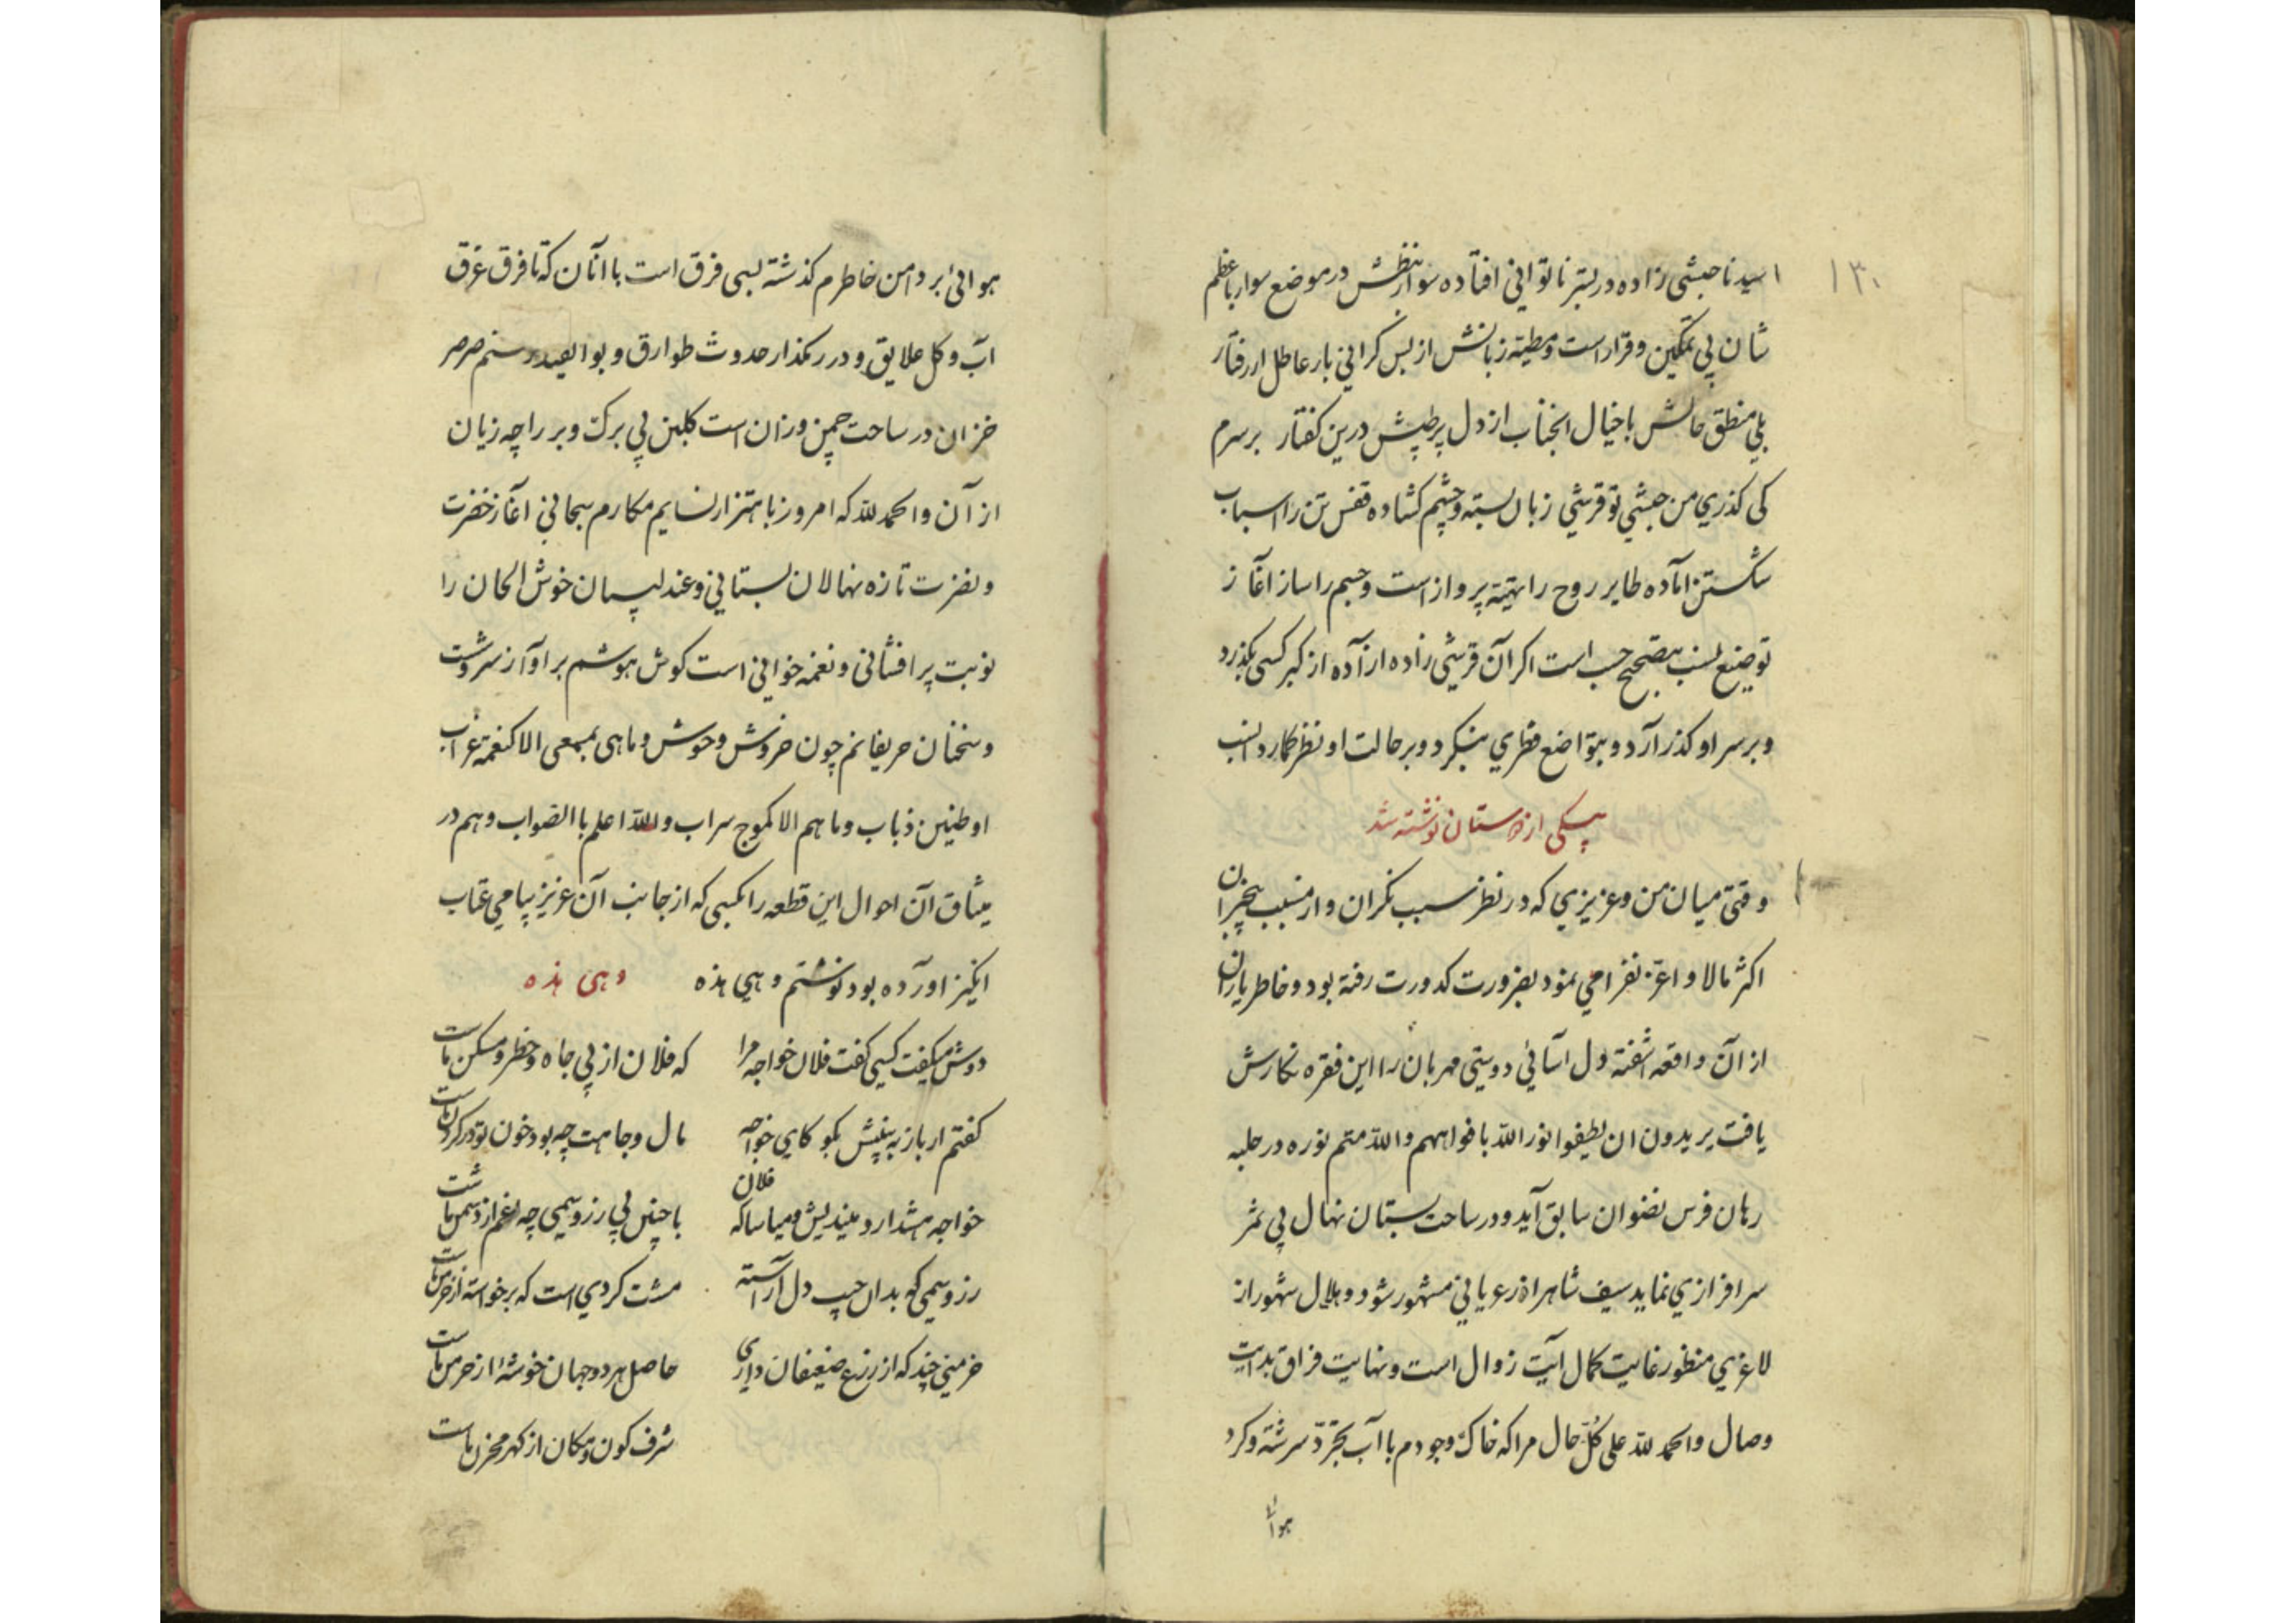 ۱۳۰
اسیدنا حبشی زاده در بستر ناتوانی افتاده سوار نطقش در موضع سوار باعظم
شان بی تمکین و قرار است و مطیه زبانش از بس کرانی بار عاطل از رفتار
بلی منطق حالش با خیال انجناب از دل پرطپش درین کفتار برسرم
کی کذری من حبشی تو قرشی زبان بسته و چشم کشاده قفس تن را اسباب
شکستن آماده طایر روح را تهیه پرواز است و جسم را ساز آغاز
توضیع نسب بتصحیح حسب است اکر آن قرشی زاده آزاده از کبر کسی بکذرد
و بر سر او کذر آرد و بتواضع فطری بنکرد و بر حالت او نظر کمارد انسب
بیکی از دوستان نوشته شد
وقتی میان من و عزیزی که در نظر سبب نکران و از مسبب بیخبران
اکثر مالا و اعز نفرا می نمود بضرورت کدورت رفته بود و خاطر یاران
از آن واقعه آشفته دل آسائی دوستی مهربان را این فقره نکارش
یافت یریدون ان لیطفوا نور الله بافواههم و الله متم نوره در حلبه
رهان فرس نضوان سابق آید و در ساحت بستان نهال بی ثمر
سرافرازی نماید سیف شاهر از عریانی مشهور شود و هلال شهور از
لاغری منظور غایت کمال آیت زوال است و نهایت فراق بدایت
وصال والحمد لله علی کل حال مرا که خاک وجودم با آب تجرد سرشته و کرد
هوائی
هوائی بر دامن خاطرم کذشته بسی فرق است با آنان که تا فرق غرق
آب و کل علایق و در رهکذار حدوث طوارق و بوایقید رستم صرصر
خزان در ساحت چمن وزان است کلبن بی برک و بر را چه زیان
از آن والحمد لله که امروز باهتزاز نسایم مکارم سبحانی آغاز خضرت
و نضرت تازه نهالان بستانی و عندلیبان خوش الحان را
نوبت پرافشانی و نغمه خوانی است کوش هوشم بر آواز سروشت
و سخنان حریفانم چون خروش وحوش و ما هی بمسمعی الا کنغمة غراب
او طنین ذباب و ما هم الا کموج سراب و الله اعلم باالصواب و هم در
میثاق آن احوال این قطعه را بکسی که از جانب آن عزیز پیامی عتاب
انکیز اورده بود نوشتم وهی هذه وهی هذه
دوش میکفت کسی کفت فلان خواجه مرا که فلان از پی جاه و خطر و مسکن ماست
کفتم ار باز به بینیش بکو کای خواجه مال و جاهت چه بود خون تو در کردن ماست
خواجه هشدار و میندیش و میاسا که فلان با چنین بی زر و سیمی چه غم از دشمن ماست
زر و سیمی که بدان چپ دل آراسته مشت کردی است که برخواسته از خرمن ماست
خرمنی چند که از زرع ضعیفان داری حاصل هر دو جهان خوشه از خرمن ماست
شرف کون و مکان از کهر مخزن ماست